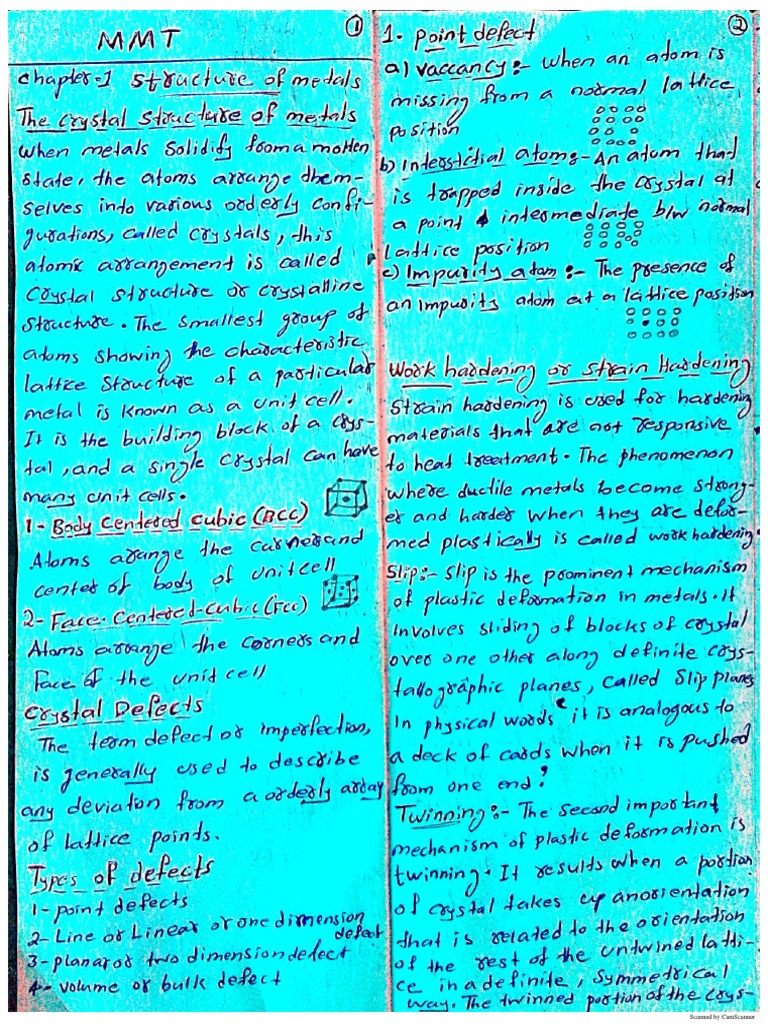 MMT
1
Chapter-1 Structure of metals
The Crystal Structure of metals
When metals Solidify from a molten
State, the atoms arrange them-
selves into various orderly confi-
gurations, called crystals, this
atomic arrangement is called
Crystal structure or crystalline
Structure. The smallest group of
atoms showing the characteristic
lattice structure of a particular
metal is known as a unit cell.
It is the building block of a crys-
tal, and a single crystal can have
many unit cells.
1- Body Centered Cubic (BCC)
Atoms arange the carners and
center of body of unit cell
2- Face-Centered-Cubic (Fcc)
Atoms arrange the corners and
Face of the unit cell
Crystal Defects
The term defect or imperfection,
is generally used to describe
any deviaton from a orderly array
of lattice points.
Types of defects
1- point defects
2- Line or Linear or one dimension
defect
3- planar or two dimension defect
4- volume or bulk defect
2
1- Point defect
a) Vaccancy:- when an atom is
missing from a normal lattice
position
b) Interstitial atom:- An atom that
is trapped inside the crystal at
a point intermediate b/w normal
lattice position
c) Impurity atom:- The presence of
an impurity atom at a lattice position
Work hardening or Strain Hardening
Strain hardening is used for hardening
materials that are not responsive
to heat treatment. The phenomenon
where ductile metals become strong-
er and harder when they are defor-
med plastically is called work hardening.
Slip:- Slip is the prominent mechanism
of plastic deformation in metals. It
involves sliding of blocks of crystal
over one other along definite crys-
tallographic planes, called Slip planes
In physical words it is analogous to
a deck of cards when it is pushed
from one end.
Twinning:- The second important
mechanism of plastic deformation is
twinning. It results when a portion
of crystal takes up an orientation
that is related to the orientation
of the rest of the untwined latti-
ce in a definite, symmetrical
way. The twinned portion of the crys-
Scanned by CamScanner